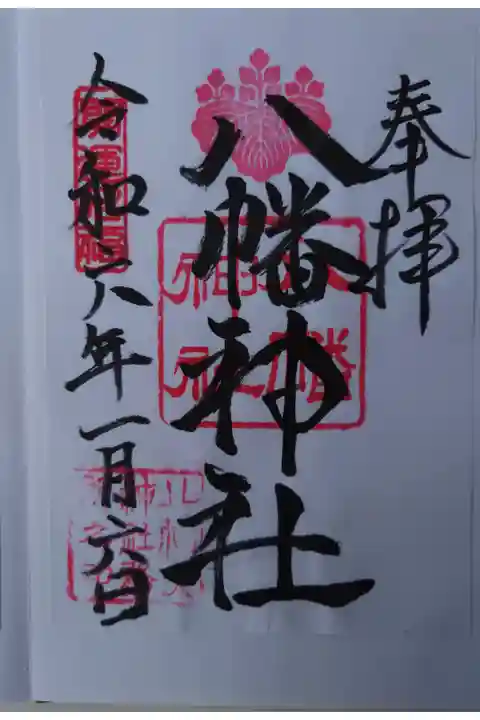 奉拝
八幡神社
八幡神社
令和六年一月六日